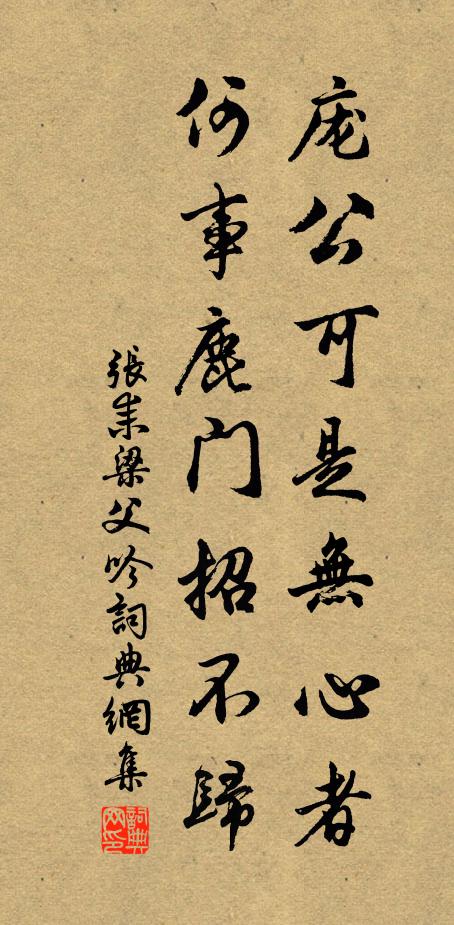 庞公可是無心者
何事鹿门招不歸
張耒梁父吟詞典網集
詞典
网印